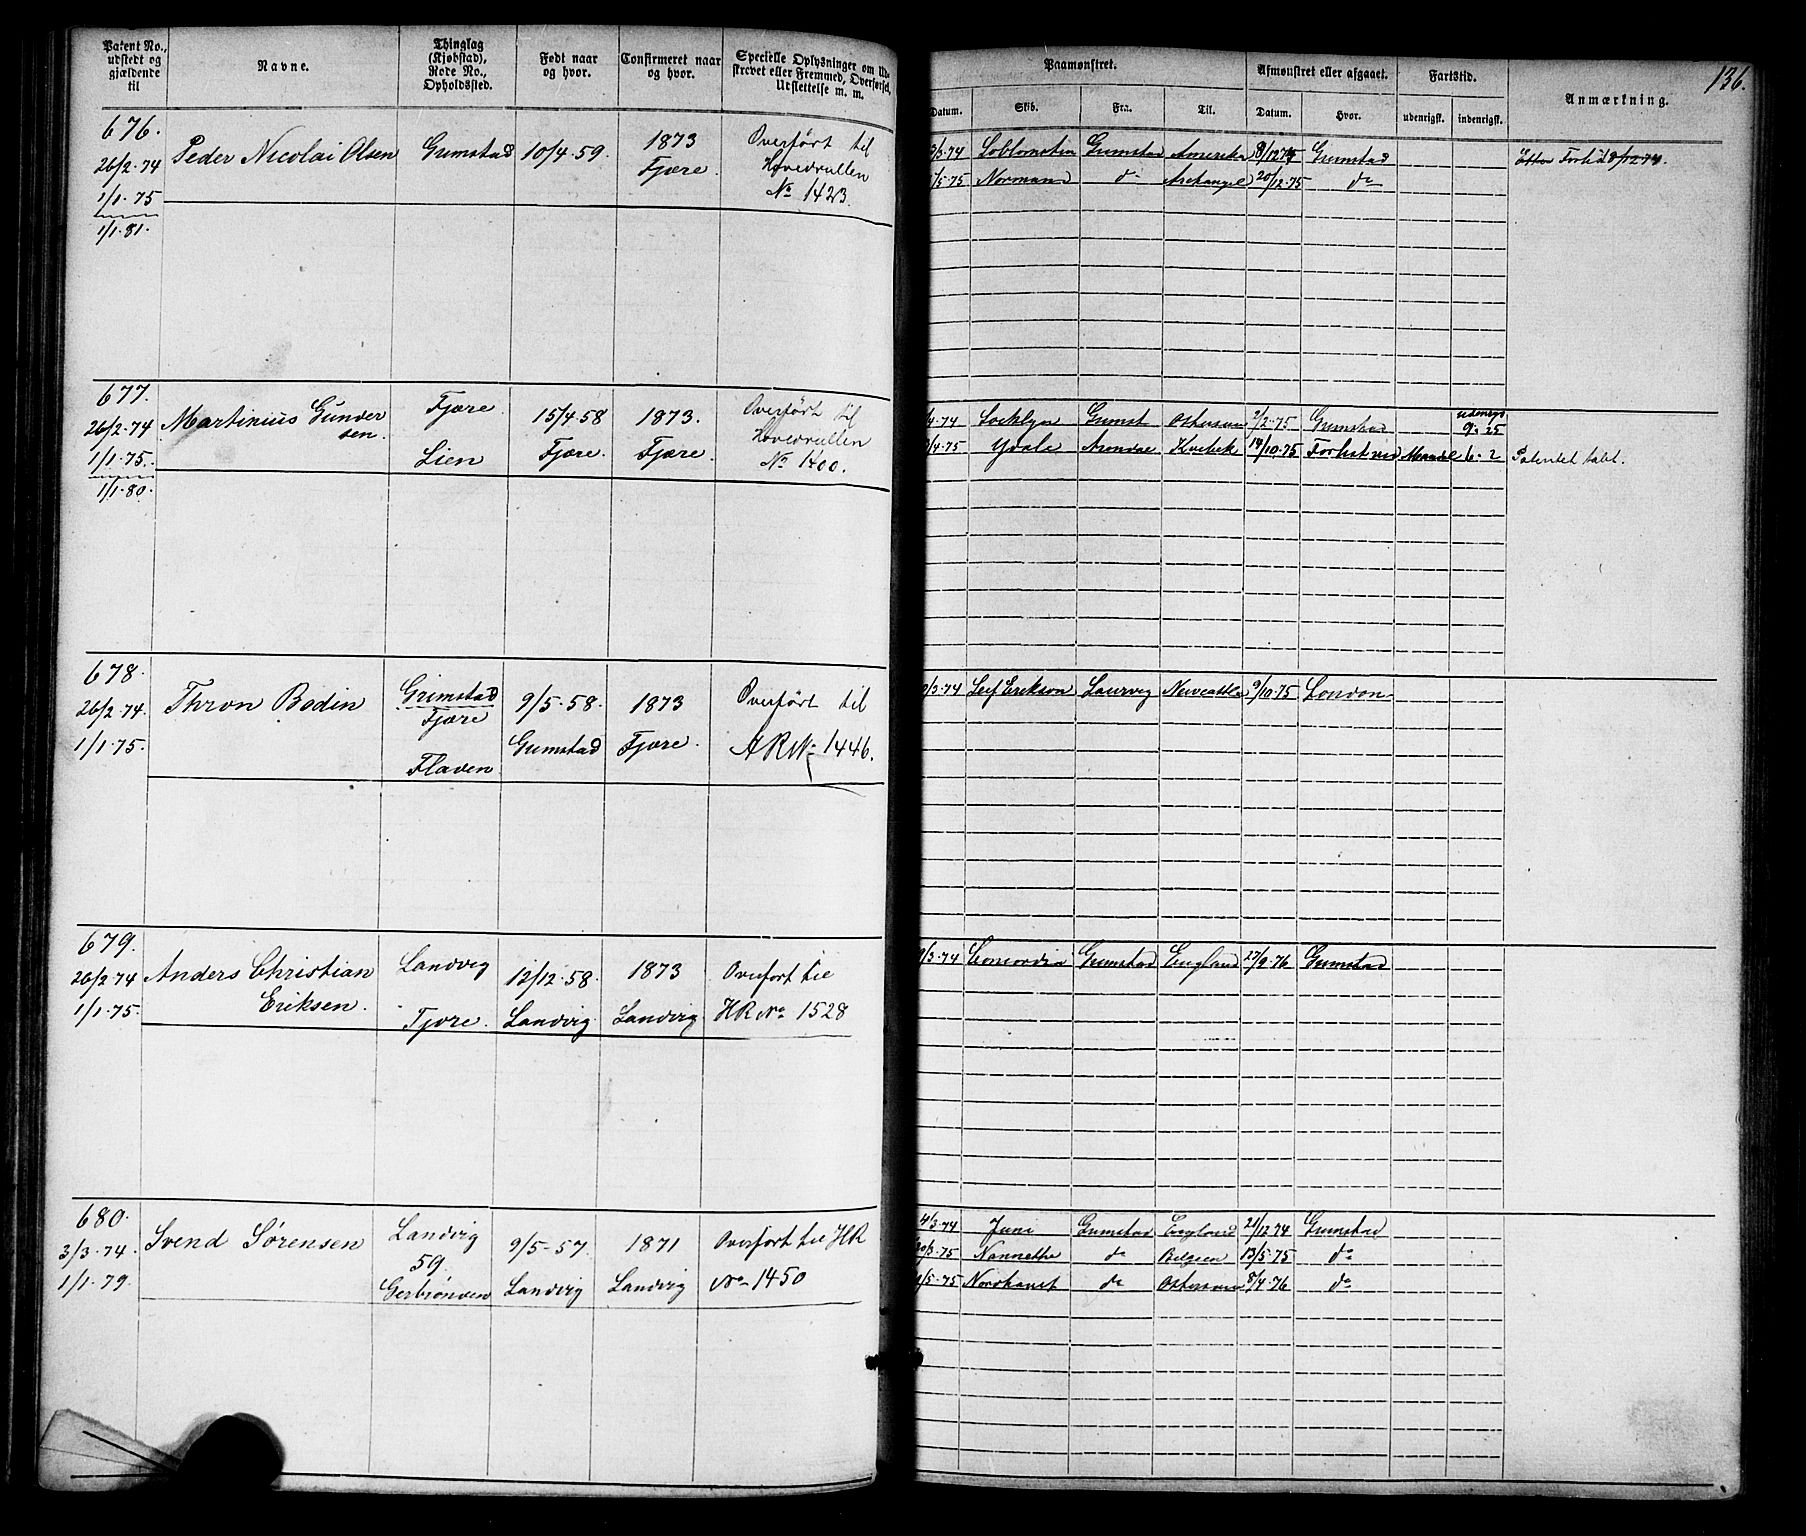 Patent No., udstedt og gjældende til
Navne.
Thinglag (Kjøbstad), Rode No., Opholdssted.
Født naar og hvor.
Confirmeret naar og hvor.
Specielle Oplysninger om Ud-
strevet eller Fremmed, Overførsel,
Udslettelse m. m.
Paamønstret.
Afmønstret eller afgaaet.
Fartstid.
Anmærkning.
136.
Datum.
Skib.
Fra.
Til.
Datum.
Hvor.
udenrigsk.
indenrigsk.
676.
26/2-74
1/1-75
1/1-81.
Peder Nicolai Olsen
Grimstad
10/4-59.
1873
Fjære.
Overført til
Hovedrullen
No 1423.
3/3-74
Grimstad
Amerika
8/12 74
Grimstad
Forlis 8/12-74.
1/5-75
Normand
do
Archangel
20/12-75
do
677.
26/2-74
1/1-75.
1/1-80.
Martinius Gunder
sen.
Fjære
Lien
15/4-58
Fjære.
1873.
Fjære.
Overført til
Hovedrullen
No 1400.
/4-74
Grimst
Østersøen
2/2-75
Grimstad
udenrigs
9-25
/4-75
Ydale
Arendal
Kvebek
19/10-75
Forlist ved
Mandal
6-2
Patentet tabt.
678.
26/2-74.
1/1-75.
Thron Bodin
Grimstad
Fjære
Flaven
9/5-58.
Grimstad
1873
Fjære.
Overført til
A R No 1446.
/3-74
Leif Erikson
Laurvig
Newcastle
9/10-75
London
679.
26/2-74
1/1-75.
Anders Christian
Eriksen.
Landvig
Fjære.
12/12-58.
Landvig
1873
Landvig
Overført til
HR No 1528
/3-74
Concordia
Grimstad
England
27/9-76
Grimstad
680.
3/3-74.
1/1-79.
Svend Sørensen
Landvig
59.
9/5-57.
Landvig
1871
Landvig
Overført til HR
No 1450
4/3-74
Juni
Grimstad
England
21/12 74
Grimstad
/3-75
Nannette
do
Belgien
13/5-75
do
/5-75
do
Østersøen
8/4-76
do